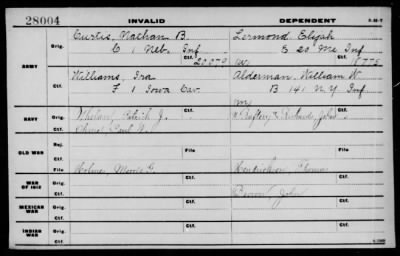 28004 INVALID DEPENDENT
Curtis, Nathan B. Lermond Elijah
Orig. C 1 Neb. Inf E 20 Me Inf
Ctf. Ctf.
ARMY
Williams, Ira Alderman, William W.
F 1 Iowa Cav. B 141 N.Y. Inf
Ctf.
NAVY Orig. Whelan, Patrick J.
Ctf.
OLD WAR Rej.
Ctf. File File
Holmes, Morris G. Hendrickson, Thomas
WAR OF 1812 Orig.
Ctf. John
MEXICAN WAR Orig.
Ctf.
INDIAN WAR Orig.
Ctf.